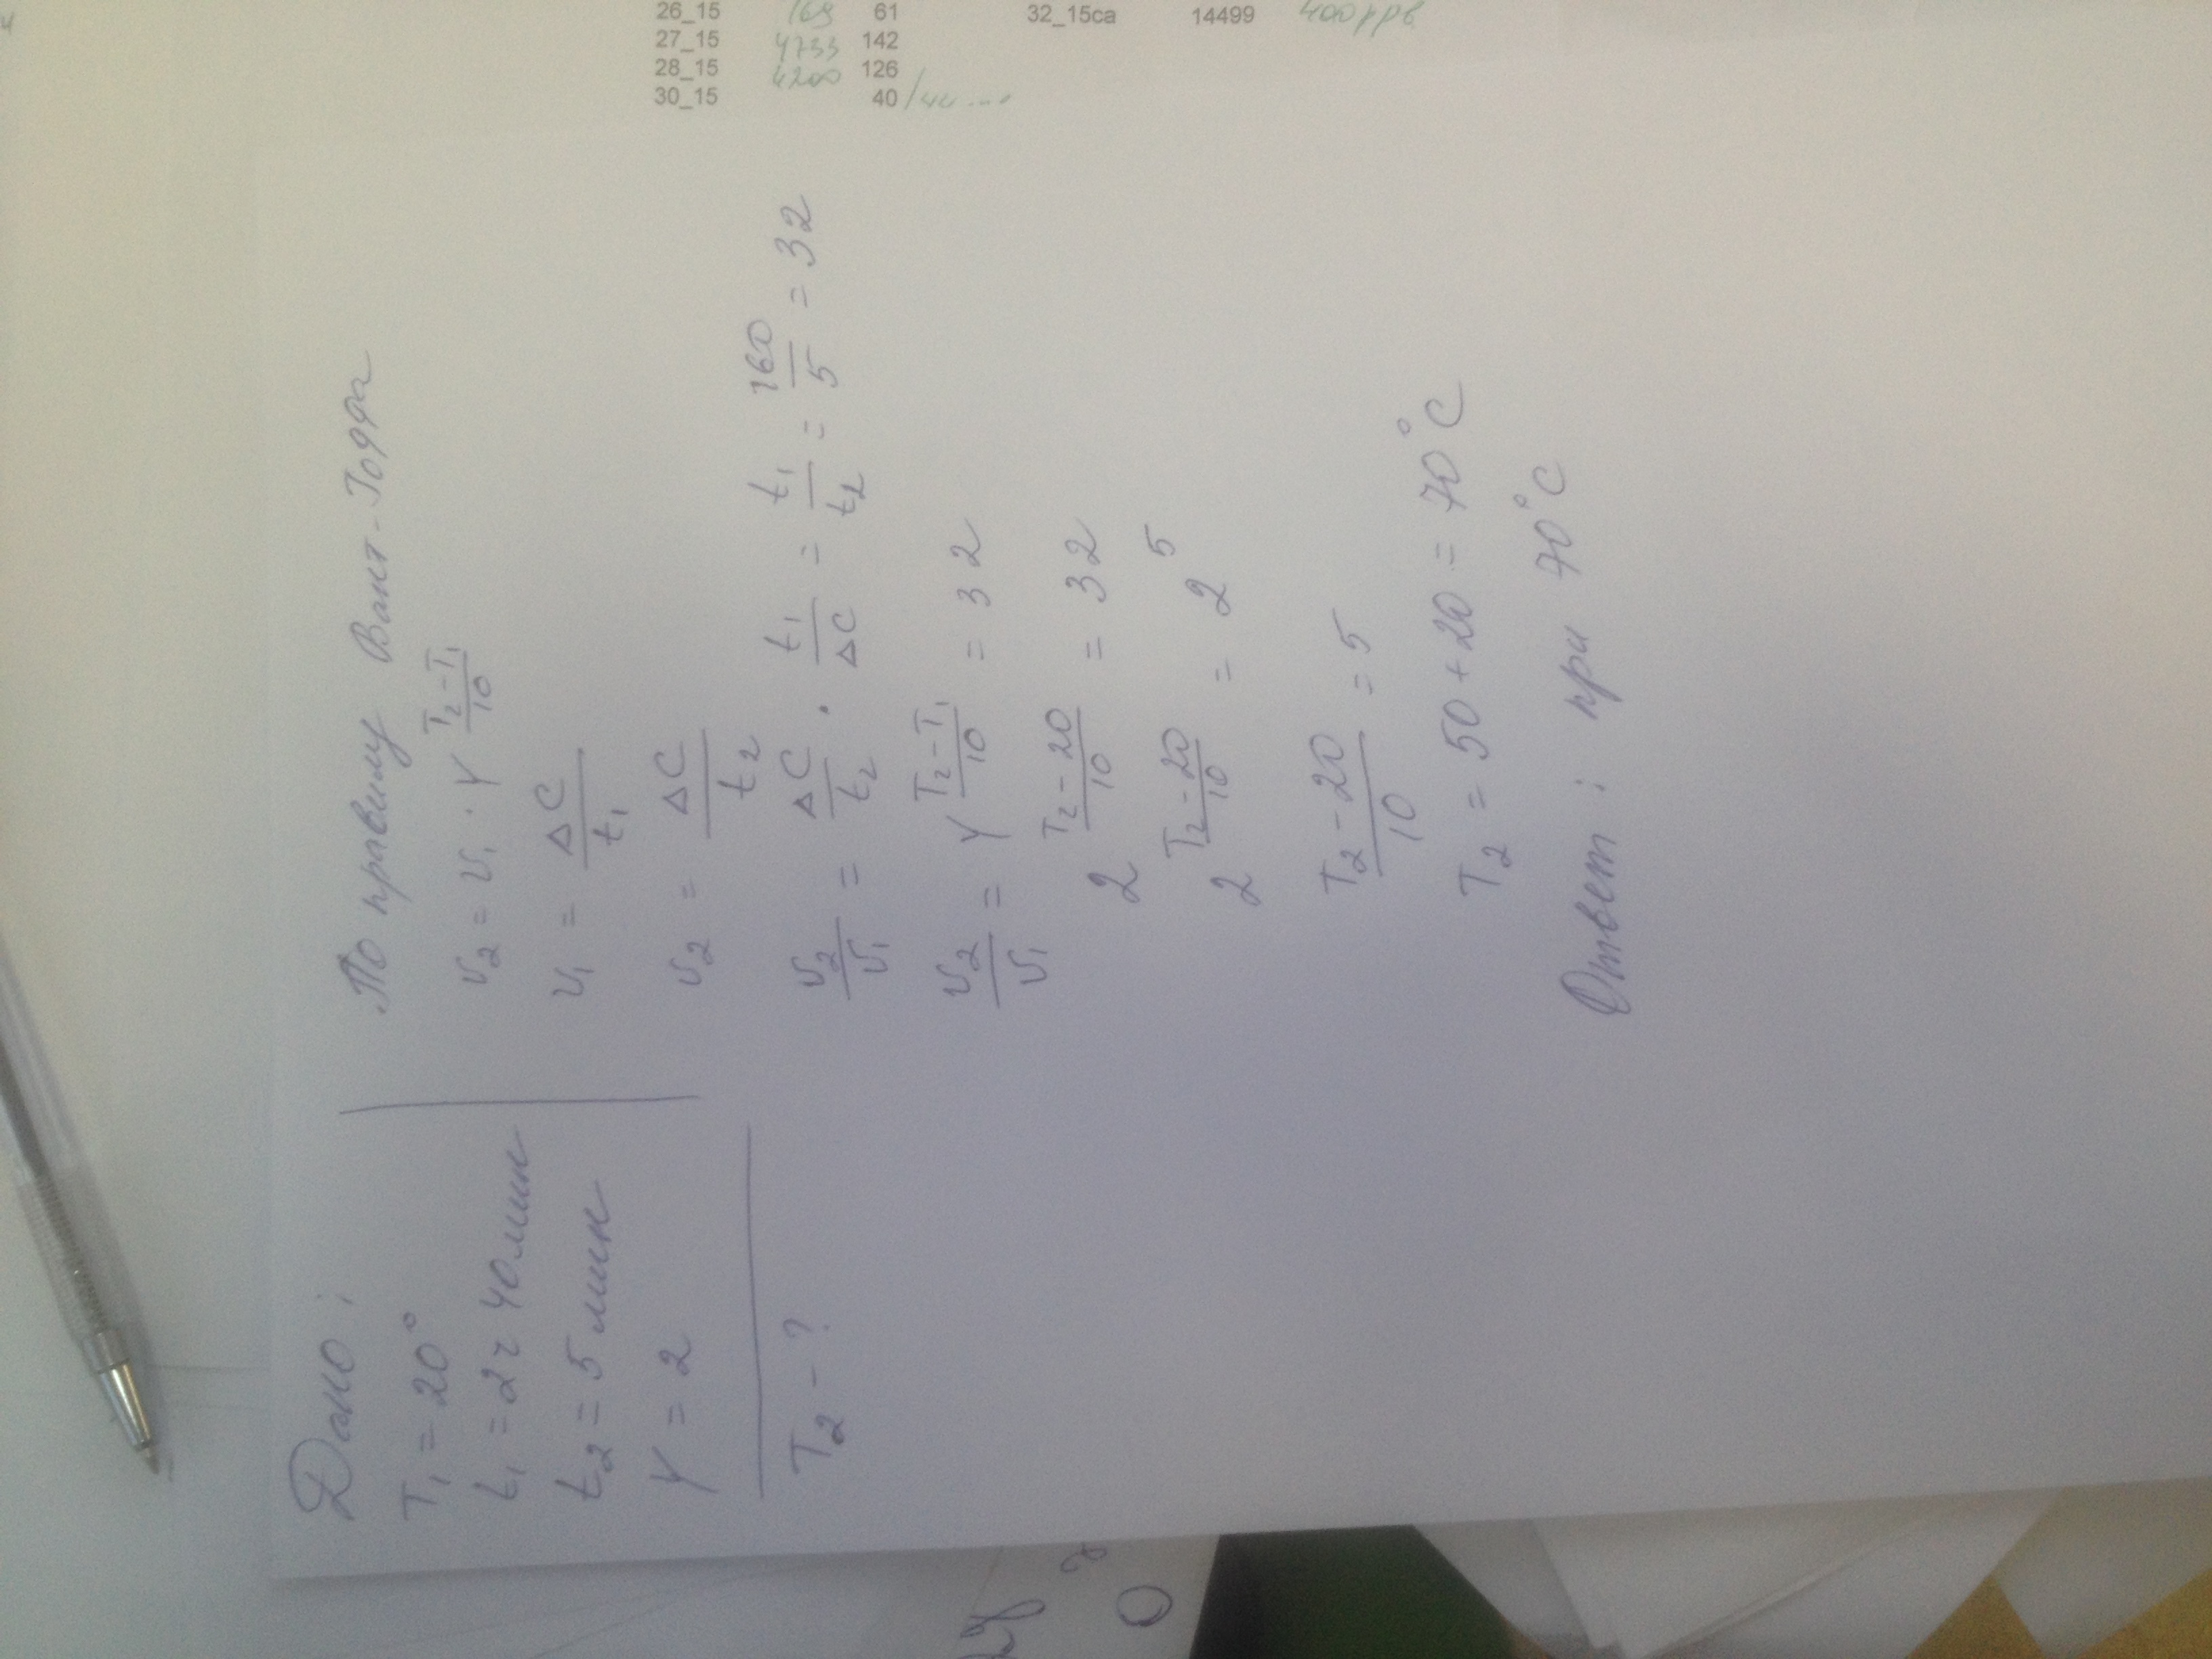 26_15 169 61 32_15ca 14499 400ppb
27_15 4733 142
28_15 4200 126
30_15 40
Дано:
T₁ = 20°
t₁ = 2ч 40мин
t₂ = 5 мин
γ = 2
T₂ - ?
По правилу Вант-Гоффа
v₂ = v₁ · γ^((T₂-T₁)/10)
v₁ = ΔC/t₁
v₂ = ΔC/t₂
v₂/v₁ = ΔC/t₂ · t₁/ΔC = t₁/t₂ = 160/5 = 32
v₂/v₁ = γ^((T₂-T₁)/10) = 32
2^((T₂-20)/10) = 32
2^((T₂-20)/10) = 2⁵
(T₂-20)/10 = 5
T₂ = 50 + 20 = 70°C
Ответ: при 70°C